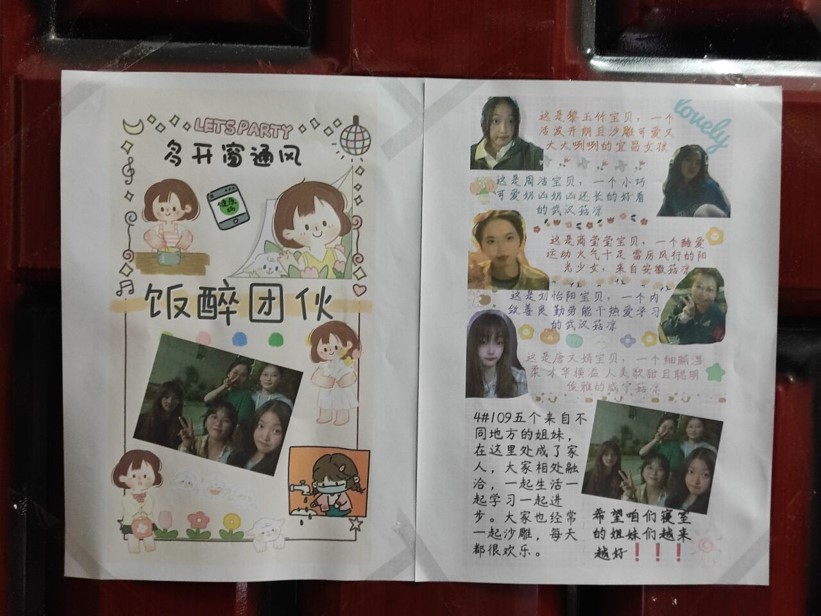 LET'S PARTY
多开窗通风
健康
码
饭醉团伙
lovely
这是黎玉竹宝贝，一个
活泼开朗且沙雕可爱又
大大咧咧的宜昌女孩
这是周洁宝贝，一个小巧
可爱奶凶奶凶还长的好看
的武汉菇凉
这是商莹莹宝贝，一个酷爱
运动大气十足雷厉风行的阳
光少女，来自安徽菇凉
这是刘怡阳宝贝，一个内
敛善良勤劳能干热爱学习
的武汉菇凉
宝贝，一个细腻温
柔冰雪
人美歌甜且聪明
俊雅的咸宁菇凉
4#109五个来自不
同地方的姐妹，
在这里处成了家
人，大家相处融
洽，一起生活一
起学习一起进
步。大家也经常
一起沙雕，每天
都很欢乐。
希望咱们寝室
的姐妹们越来
越好！！！